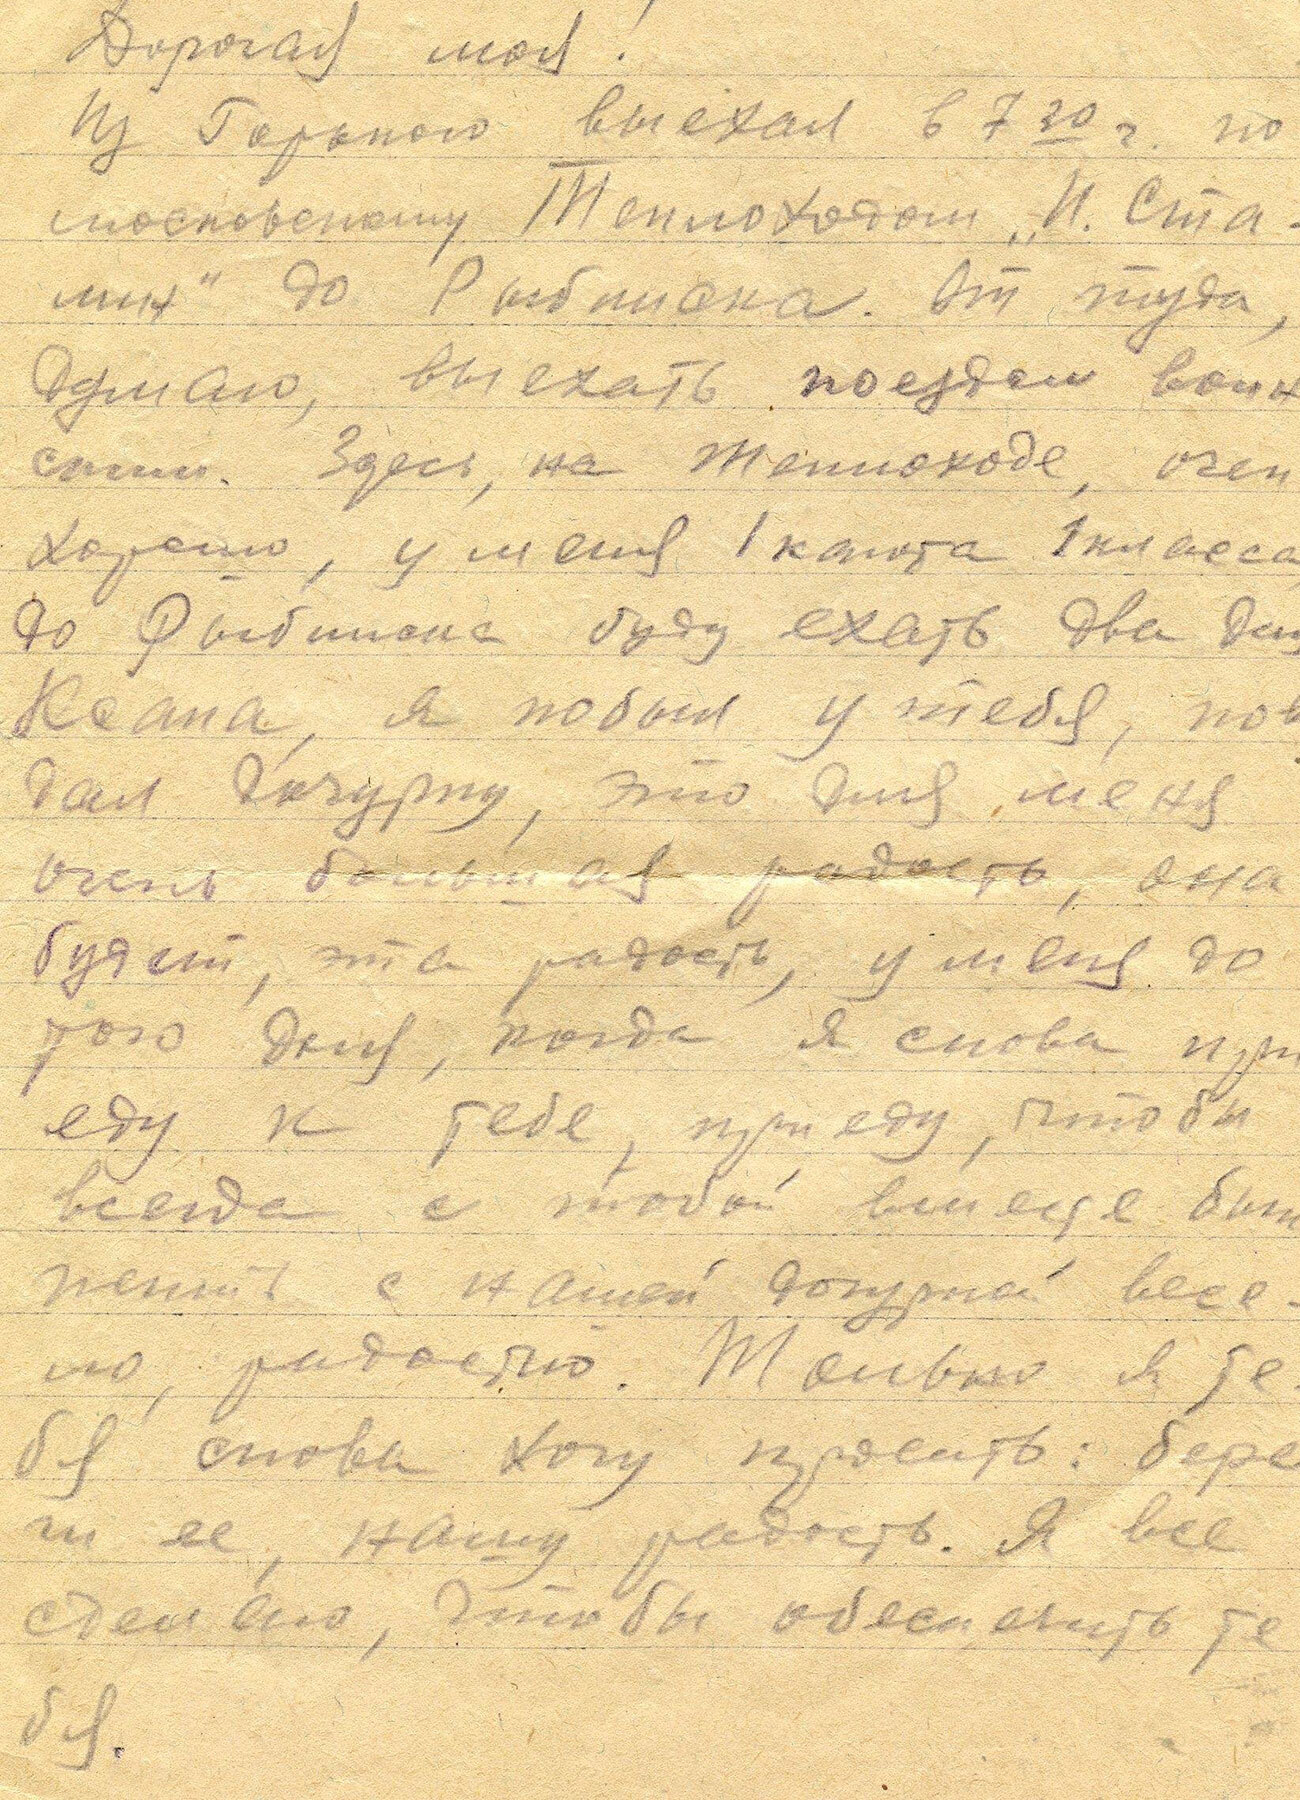 Дорогая моя!
Из Горького выехал в 7 30 ч. по
московскому Теплоходом „И. Ста-
лин" до Рыбинска. От туда,
думаю, выехать поездом воин
ским. Здесь, на теплоходе, очен
хорошо, у меня 1 каюта 1 класса,
до Рыбинска буду ехать два дня
Ксана, я побыл у тебя, пов
дал дочурку, это для меня
очень большая радость, она
будет, эта радость, у меня до
того дня, когда я снова при
еду к тебе, приеду, чтобы
всегда с тобой вместе быт
жить с нашей дочуркой весе-
ло, радостно. Только я те-
бя снова хочу просить: бере
ги ее, нашу радость. Я все
сделаю, чтобы обеспечить те
бя.